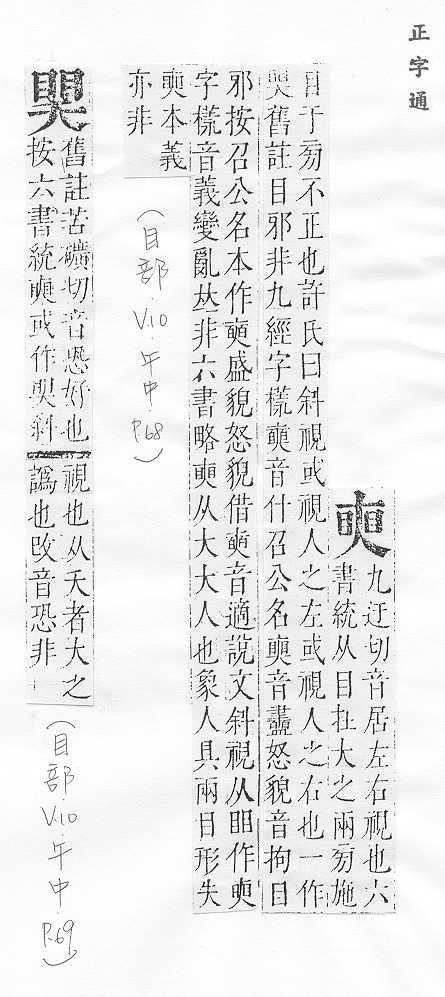 正字通
九迂切音居左右視也六
書統从目拄大之兩旁施
目于旁不正也許氏曰斜視或視人之左或視人之右也一作
舊註目邪非九經字㨾奭音什召公名奭音衋怒貌音拘目
邪按召公名本作奭盛貌怒貌借奭音適說文斜視从䀠作
字㨾音義變亂𠀤非六書略从大大人也象人具兩目形失
本義
亦非
(目部.V.10.午中.P.68)
舊註苦礦切音恐好也
按六書統或作斜
視也从夭者大之
譌也改音恐非
(目部.V.10.午中.P.69)